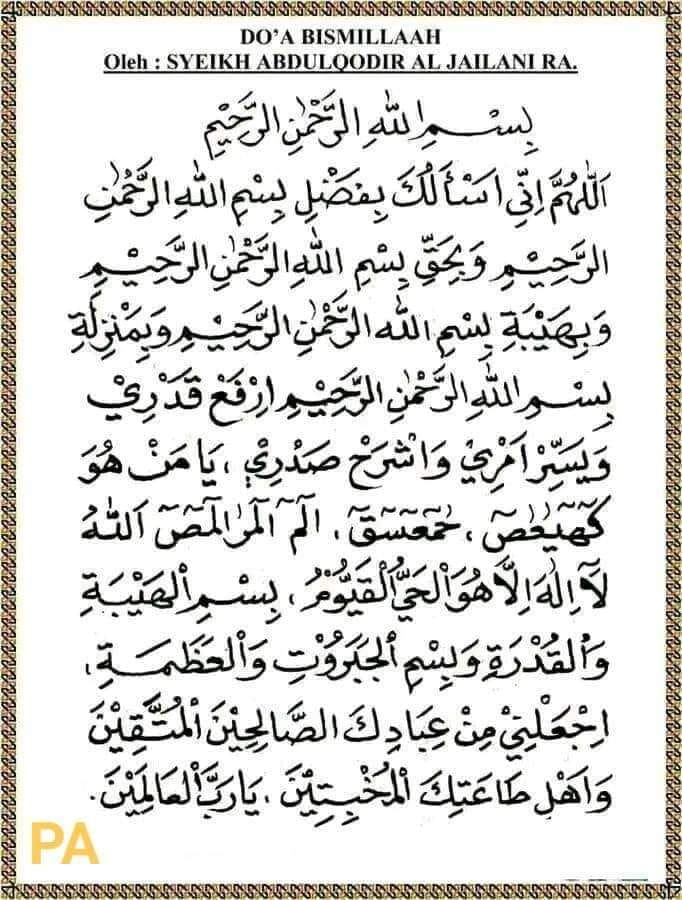 DO'A BISMILLAAH
Oleh : SYEIKH ABDULQODIR AL JAILANI RA.
بِسْمِ اللهِ الرَّحْمٰنِ الرَّحِيْمِ
اَللّٰهُمَّ اِنِّي اَسْأَلُكَ بِفَضْلِ بِسْمِ اللهِ الرَّحْمٰنِ
الرَّحِيْمِ وَبِحَقِّ بِسْمِ اللهِ الرَّحْمٰنِ الرَّحِيْمِ
وَبِهَيْبَةِ بِسْمِ اللهِ الرَّحْمٰنِ الرَّحِيْمِ وَبِمَنْزِلَةِ
بِسْمِ اللهِ الرَّحْمٰنِ الرَّحِيْمِ اِرْفَعْ قَدْرِيْ
وَيَسِّرْ اَمْرِيْ وَاشْرَحْ صَدْرِيْ ، يَا مَنْ هُوَ
كٓهٰيٰعٓصٓ ، حٰمٓعٓسٓقٓ ، الٓمٓ الٓمٓرٰ الٓمٓصٓ اَللهُ
لَآ اِلٰهَ اِلَّا هُوَ الْحَيُّ الْقَيُّوْمُ ، بِسْمِ الْهَيْبَةِ
وَالْقُدْرَةِ وَبِسْمِ الْجَبَرُوْتِ وَالْعَظَمَةِ ،
اِجْعَلْنِيْ مِنْ عِبَادِكَ الصَّالِحِيْنَ الْمُتَّقِيْنَ
وَاَهْلِ طَاعَتِكَ الْمُخْبِتِيْنَ ، يَا رَبَّ الْعَالَمِيْنَ .
PA